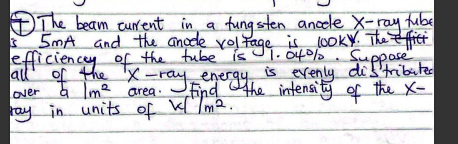 7 The beam current in a tungsten anode X-ray tube
is 5mA and the anode voltage is 100kV. The effici
efficiencey of the tube is 1.04%. Suppose
all of the X-ray energy is evenly distributed
over a 1m² area. Find the intensity of the X-
ray in units of W/m².